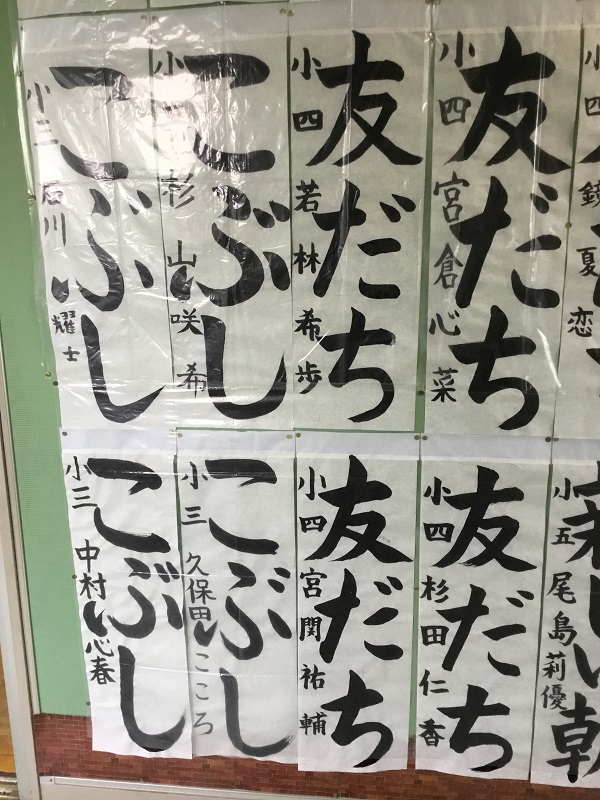 友だち
小四 宮倉心菜
友だち
小四 若林希歩
こぶし
小三 杉山咲希
こぶし
小三 石川耀士
小五 尾島莉優
友だち
小四 杉田仁香
友だち
小四 宮関祐輔
こぶし
小三 久保田こころ
こぶし
小三 中村心春